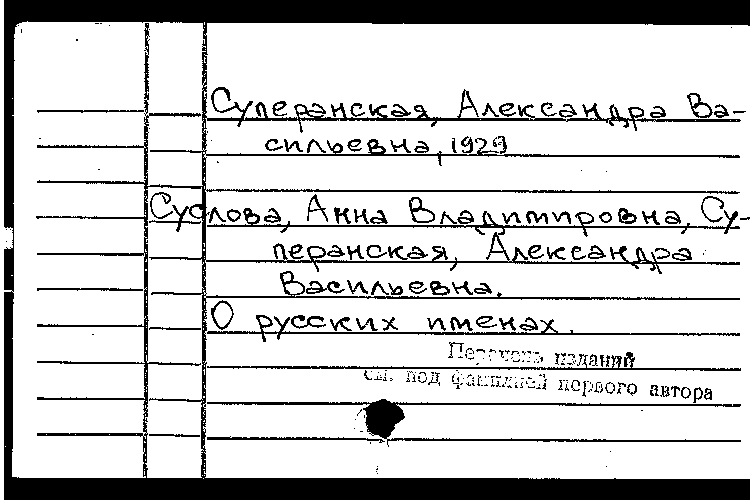 Суперанская, Александра Ва-
сильевна, 1929
Суслова, Анна Владимировна, Су-
перанская, Александра
Васильевна.
О русских именах.
Перечень изданий
см. под фамилией первого автора